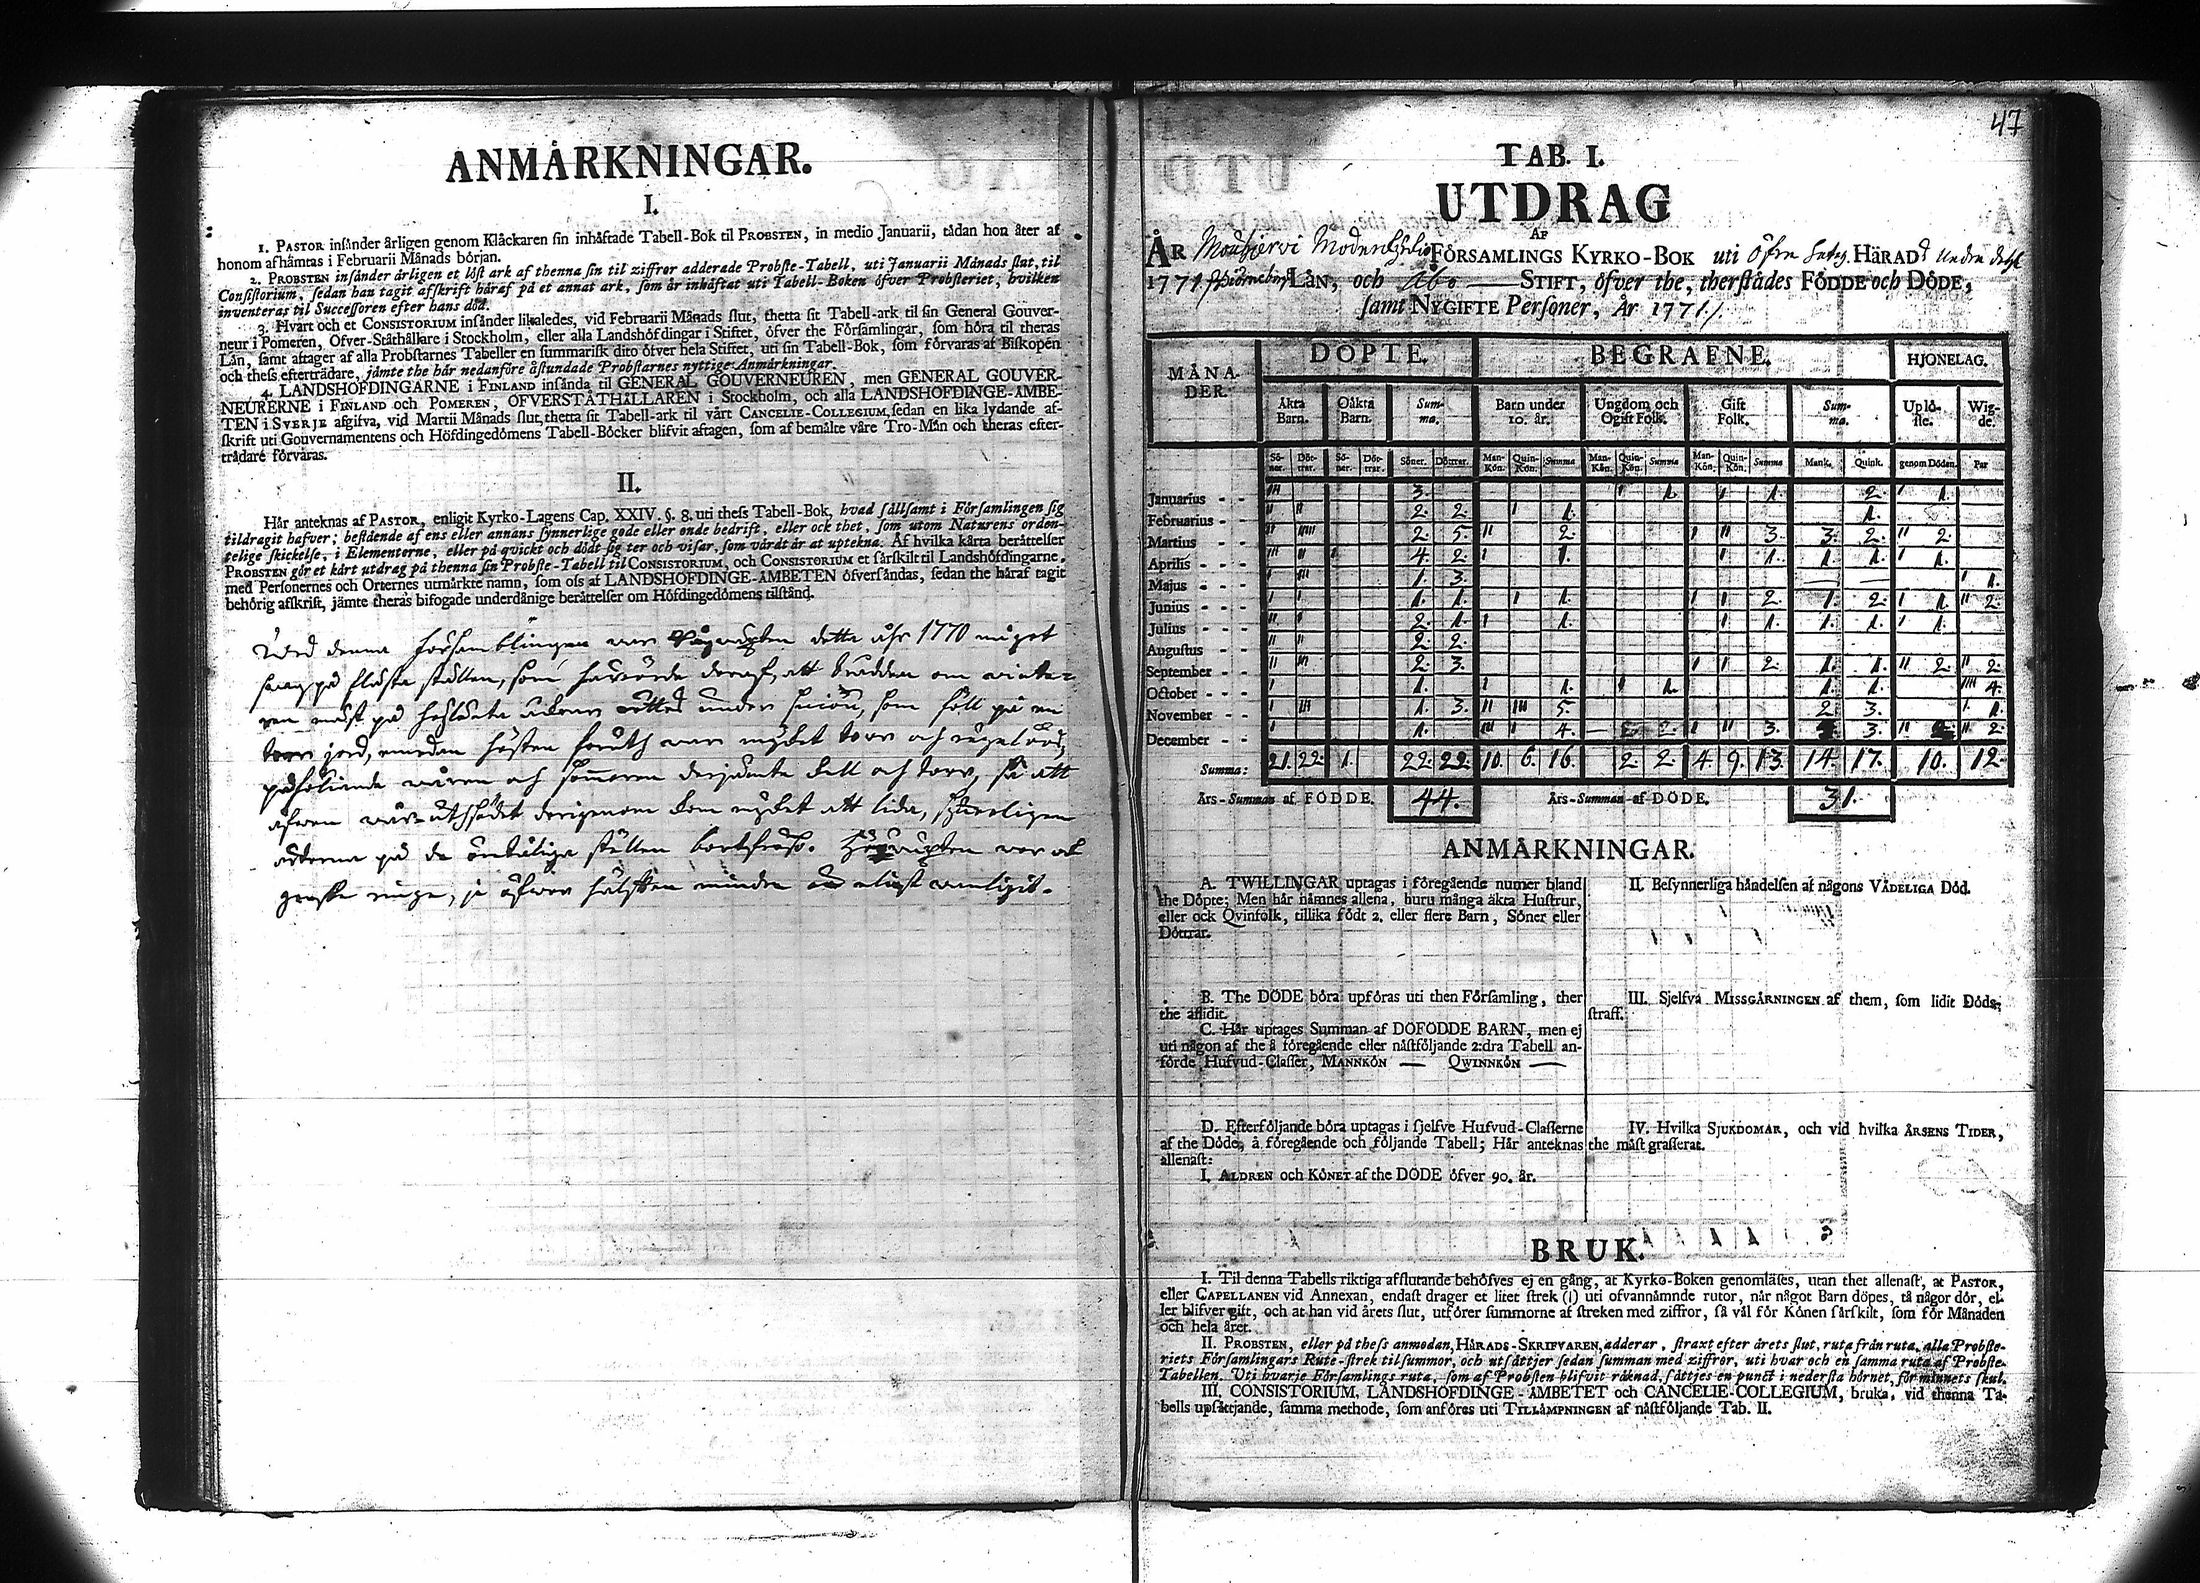 ANMÅRKNINGAR.
I.
1. PASTOR insånder årligen genom Klåckaren sin inhåftade Tabell-Bok til PROBSTEN, in medio Januarii, tådan hon åter af
honom afhåmtas i Februarii Månads början.
2. PROBSTEN insånder årligen et löst ark af thenna sin til ziffror adderade Probste-Tabell, uti Januarii Månads slut, til
Consistorium, sedan han tagit afskrift håraf på et annat ark, som år inhåftat uti Tabell-Boken öfver Probsteriet, hvilken
inventeras til Successoren efter hans död.
3. Hvart och et CONSISTORIUM insånder likaledes, vid Februarii Månads slut, thetta sit Tabell-ark til sin General Gouver-
neur i Pomeren, Öfver-Ståthållare i Stockholm, eller alla Landshöfdingar i Stiftet, öfver the Församlingar, som höra til theras
Lån, samt aftager af alla Probstarnes Tabeller en summarisk dito öfver hela Stiftet, uti sin Tabell-Bok, som förvaras af Biskopen
och thess efterträdare, jåmte the hår nedanföre åstundade Probstarnes nyttige Anmårkningar.
4. LANDSHÖFDINGARNE i FINLAND insånda til GENERAL GOUVERNEUREN, men GENERAL GOUVER-
NEURERNE i FINLAND och POMEREN, ÖFVERSTÅTHÅLLAREN i Stockholm, och alla LANDSHÖFDINGE-ÅMBE-
TEN i SVERJE afgifva, vid Martii Månads slut, thetta sit Tabell-ark til vårt CANCELIE-COLLEGIUM, sedan en lika lydande af-
skrift uti Gouvernamentens och Höfdingedömens Tabell-Böcker blifvit aftagen, som af bemålte våre Tro-Mån och theras efter-
trådare förvaras.
II.
Hår anteknas af PASTOR, enligit Kyrko-Lagens Cap. XXIV. §. 8. uti thess Tabell-Bok, hvad sållsamt i Församlingen sig
tildragit hafver; bestående af ens eller annans synnerlige gode eller onde bedrift, eller ock thet, som utom Naturens orden-
telige skickelse, i Elementerne, eller på qvickt och dödt sig ter och visar, som vårdt år at uptekna. Af hvilka kårta beråttelser
PROBSTEN gör et kårt utdrag på thenna sin Probste-Tabell til CONSISTORIUM, och CONSISTORIUM et sårskilt til Landshöfdingarne,
med Personernes och Orternes utmårkte namn, som oss af LANDSHÖFDINGE-ÅMBETEN öfversåndas, sedan the håraf tagit
behörig afskrift, jåmte theras bifogade underdånige beråttelser om Höfdingedömens tilstånd.
Wed denna församblingen war åhrwäxten detta åhr 1770 något
swag på flästa ställen, som härrörde deraf, att brådden om winte-
ren mäst på höglänta åkrar ruttnad under sniön, som föll på en
jord, emedan hösten föruth war mycket torr och
påföliande wåren och sommaren derjämte kall och torr, så att
äfwen wår-uthsädet derigenom kom mycket att lida,
ärterna på de ömtåliga ställen bortfrusit. Höwäxten war ock
ganska ringa, ja öfwer hälften mindre än eliest wanligit.
47
TAB. I.
UTDRAG
AF
ÅR Mouhjervi Moderkyrkio FÖRSAMLINGS KYRKO-BOK uti Öfre Satag. HÄRADs Nedra del
1771. Biörneborgs LÄN, och Åbo STIFT, öfver the, therstådes FÖDDE och DÖDE,
samt NYGIFTE Personer, År 1771.
MÅNA-DER. DÖPTE. BEGRAFNE. HJONELAG.
Åkta Barn. Oåkta Barn. Summa. Barn under 10. år. Ungdom och Ogift Folk. Gift Folk. Summa. Uplöste. Wigde.
Söner. Döttrar. Söner. Döttrar. Söner. Döttrar. Man-Kön. Quin-Kön. Summa Man-Kön. Quin-Kön. Summa Man-Kön. Quin-Kön. Summa Mank. Quink. genom Döden. Par
Januarius - - III 3. I 1. I 1. 2. I 1.
Februarius - - II II 2. 2. I 1. 1.
Martius - - II IIIII 2. 5. II 2. I II 3. 3. 2. II 2.
Aprilis - - III II I 4. 2. I 1. I 1. 1. 1. I 1.
Majus - - I III 1. 3. — — I 1.
Junius - - I I 1. 1. I 1. I I 2. 1. 2. I 1. II 2.
Julius - - II I 2. 1. I 1. I 1. 1. 1. I 1.
Augustus - - II II 2. 2.
September - - II III 2. 3. I I 2. 1. 1. II 2. II 2.
October - - I 1. I 1. I 1. 1. 1. IIII 4.
November - - I III 1. 3. II III 5. 2. 3. I 1.
December - - I 1. III I 4. 2. I II 3. 3. II 2. II 2.
Summa: 21. 22. 1. 22. 22. 10. 6. 16. 2. 2. 4. 9. 13. 14. 17. 10. 12.
Års-Summan af FÖDDE. 44. Års-Summan af DÖDE. 31.
ANMÅRKNINGAR.
A. TWILLINGAR uptagas i föregående numer bland
the Döpte; Men hår nåmnes allena, huru många åkta Hustrur,
eller ock Qvinfolk, tillika födt 2. eller flere Barn, Söner eller
Döttrar.
B. The DÖDE böra upföras uti then Församling, ther
the aflidit.
C. Hår uptages Summan af DÖFÖDDE BARN, men ej
uti någon af the å föregående eller nåstföljande 2:dra Tabell an-
förde Hufvud-Classer, MANNKÖN — QWINNKÖN —
D. Efterföljande böra uptagas i sjelfve Hufvud-Classerne
af the Döde, å föregående och följande Tabell; Hår anteknas
allenast:
I. ÅLDREN och KÖNET af the DÖDE öfver 90. år.
II. Besynnerliga håndelsen af någons VÅDELIGA Död.
III. Sjelfva MISSGÅRNINGEN af them, som lidit Döds-
straff.
IV. Hvilka SJUKDOMAR, och vid hvilka ÅRSENS TIDER,
the måst grasserat.
BRUK.
I. Til denna Tabells riktiga afslutande behöfves ej en gång, at Kyrko-Boken genomlåses, utan thet allenast, at PASTOR,
eller CAPELLANEN vid Annexan, endast drager et litet strek (I) uti ofvannåmnde rutor, når något Barn döpes, tå någor dör, el-
ler blifver gift, och at han vid årets slut, utförer summorne af streken med ziffror, så vål för Könen sårskilt, som för Månaden
och hela året.
II. PROBSTEN, eller på thess anmodan, HÅRADS-SKRIFVAREN adderar, straxt efter årets slut, ruta från ruta, alla Probste-
riets Församlingars Rute-strek til summor, och utsåttjer sedan summan med ziffror, uti hvar och en samma ruta af Probste-
Tabellen. Uti hvarje Församlings ruta, som af Probsten blifvit råknad, såttjes en punct i nedersta hörnet, för minnets skul.
III. CONSISTORIUM, LANDSHÖFDINGE-ÅMBETET och CANCELIE-COLLEGIUM, bruka, vid thenna Ta-
bells upsåttjande, samma methode, som anföres uti TILLÅMPNINGEN af nåstföljande Tab. II.